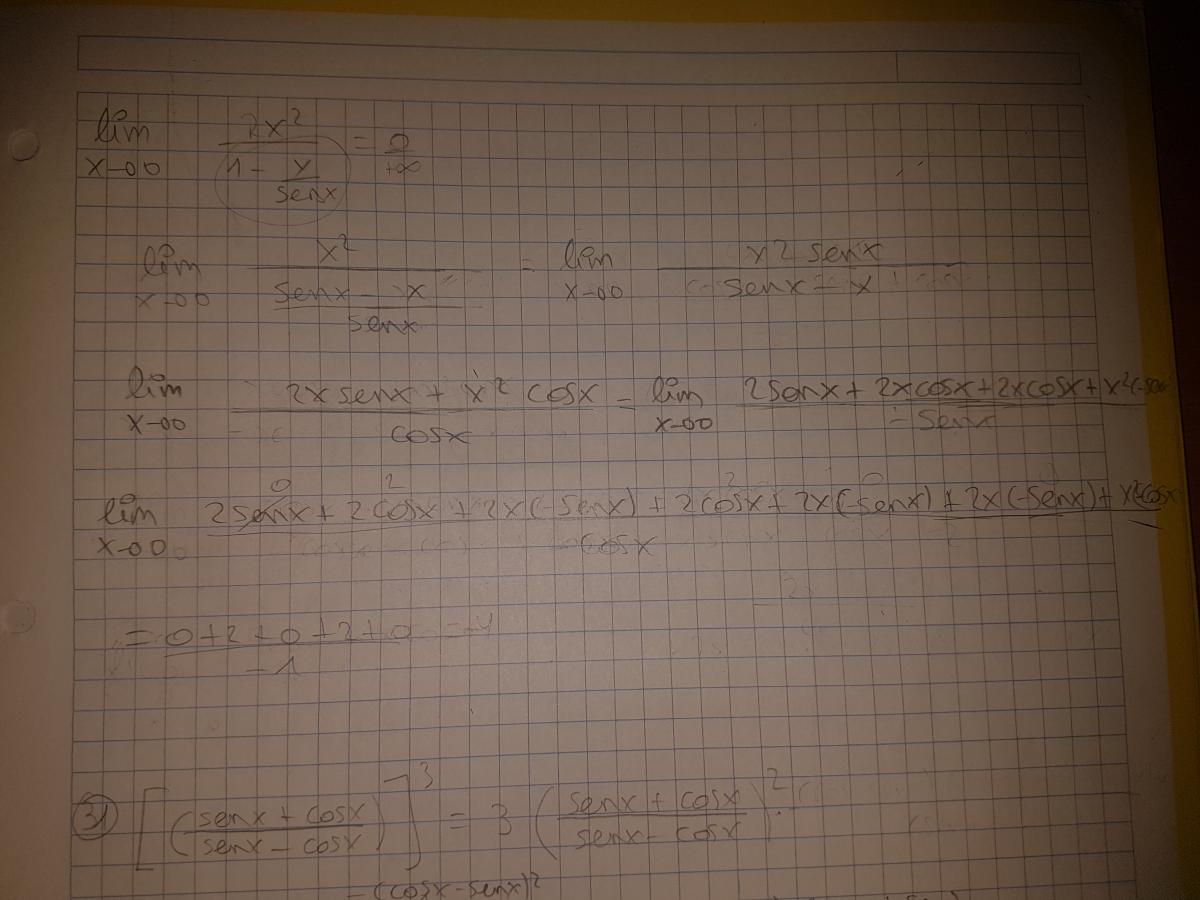 lim x→0 2x² / (1 - x/senx) = 0/+∞
lim x→0 x² / ((senx - x)/senx) = lim x→0 x² senx / (senx - x)
lim x→0 (2x senx + x² cosx) / cosx = lim x→0 (2senx + 2xcosx + 2xcosx + x²(-senx / -senx
lim x→0 (2senx + 2cosx + 2x(-senx) + 2cosx + 2x(-senx) + 2x(-senx) + x²(-cosx / -cosx
0 2 2 0
= (0+2+0+2+0) / -1 = -4
31 [((senx + cosx)/(senx - cosx))]³ = 3 ((senx + cosx)/(senx - cosx))² ·
- (cosx - senx)²